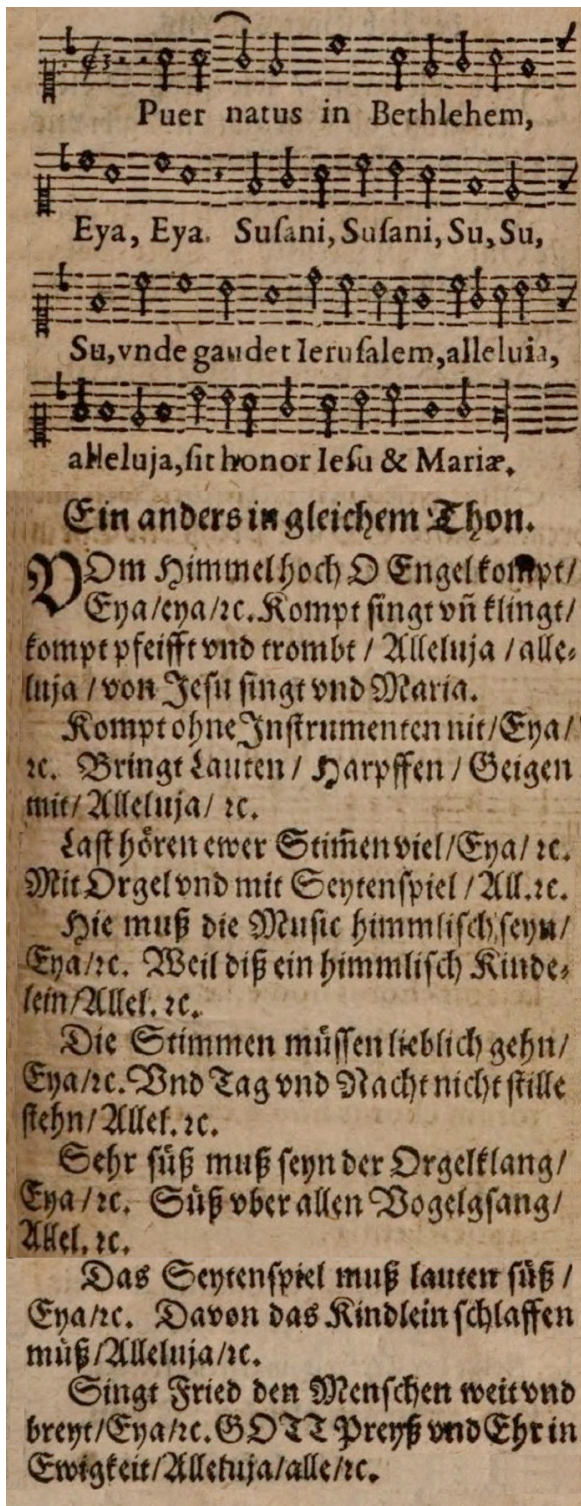 Puer natus in Bethlehem,
Eya, Eya. Suſani, Suſani, Su, Su,
Su, vnde gaudet Ieruſalem, alleluia,
alleluja, ſit honor Ieſu & Mariæ.
Ein anders in gleichem Thon.
VOm Himmel hoch O Engel kompt/
Eya/eya/ꝛc. Kompt ſingt vñ klingt/
kompt pfeifft vnd trombt / Alleluja / alle⸗
luja / von Jeſu ſingt vnd Maria.
Kompt ohne Inſtrumenten nit/Eya/
ꝛc. Bringt Lauten / Harpffen / Geigen
mit/Alleluja/ ꝛc.
Laſt hören ewer Stim̃en viel/Eya/ ꝛc.
Mit Orgel vnd mit Seytenſpiel / All.ꝛc.
Hie muß die Muſic himmliſch ſeyn/
Eya/ꝛc. Weil diß ein himmliſch Kinde⸗
lein/Allel. ꝛc.
Die Stimmen müſſen lieblich gehn/
Eya/ꝛc. Vnd Tag vnd Nacht nicht ſtille
ſtehn/Allel. ꝛc.
Sehr ſüß muß ſeyn der Orgelklang/
Eya/ꝛc. Süß vber allen Vogelgſang/
Allel. ꝛc.
Das Seytenſpiel muß lauten ſüß /
Eya/ꝛc. Davon das Kindlein ſchlaffen
müß/Alleluja/ꝛc.
Singt Fried den Menſchen weit vnd
breyt/Eya/ꝛc. GOTT Preyß vnd Ehr in
Ewigkeit/Alleluja/alle/ꝛc.